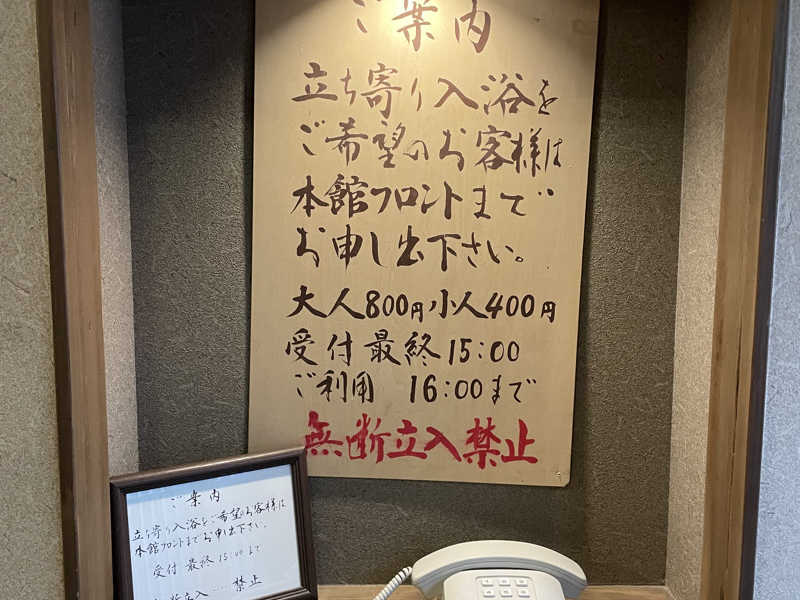 ご案内
立ち寄り入浴を
ご希望のお客様は
本館フロントまで
お申し出下さい。
大人800円 小人400円
受付 最終 15:00
ご利用 16:00まで
無断立入禁止
ご案内
立ち寄り入浴をご希望のお客様は
本館フロントまでお申出下さい.
受付 最終 15:00 まで
断立入 禁止